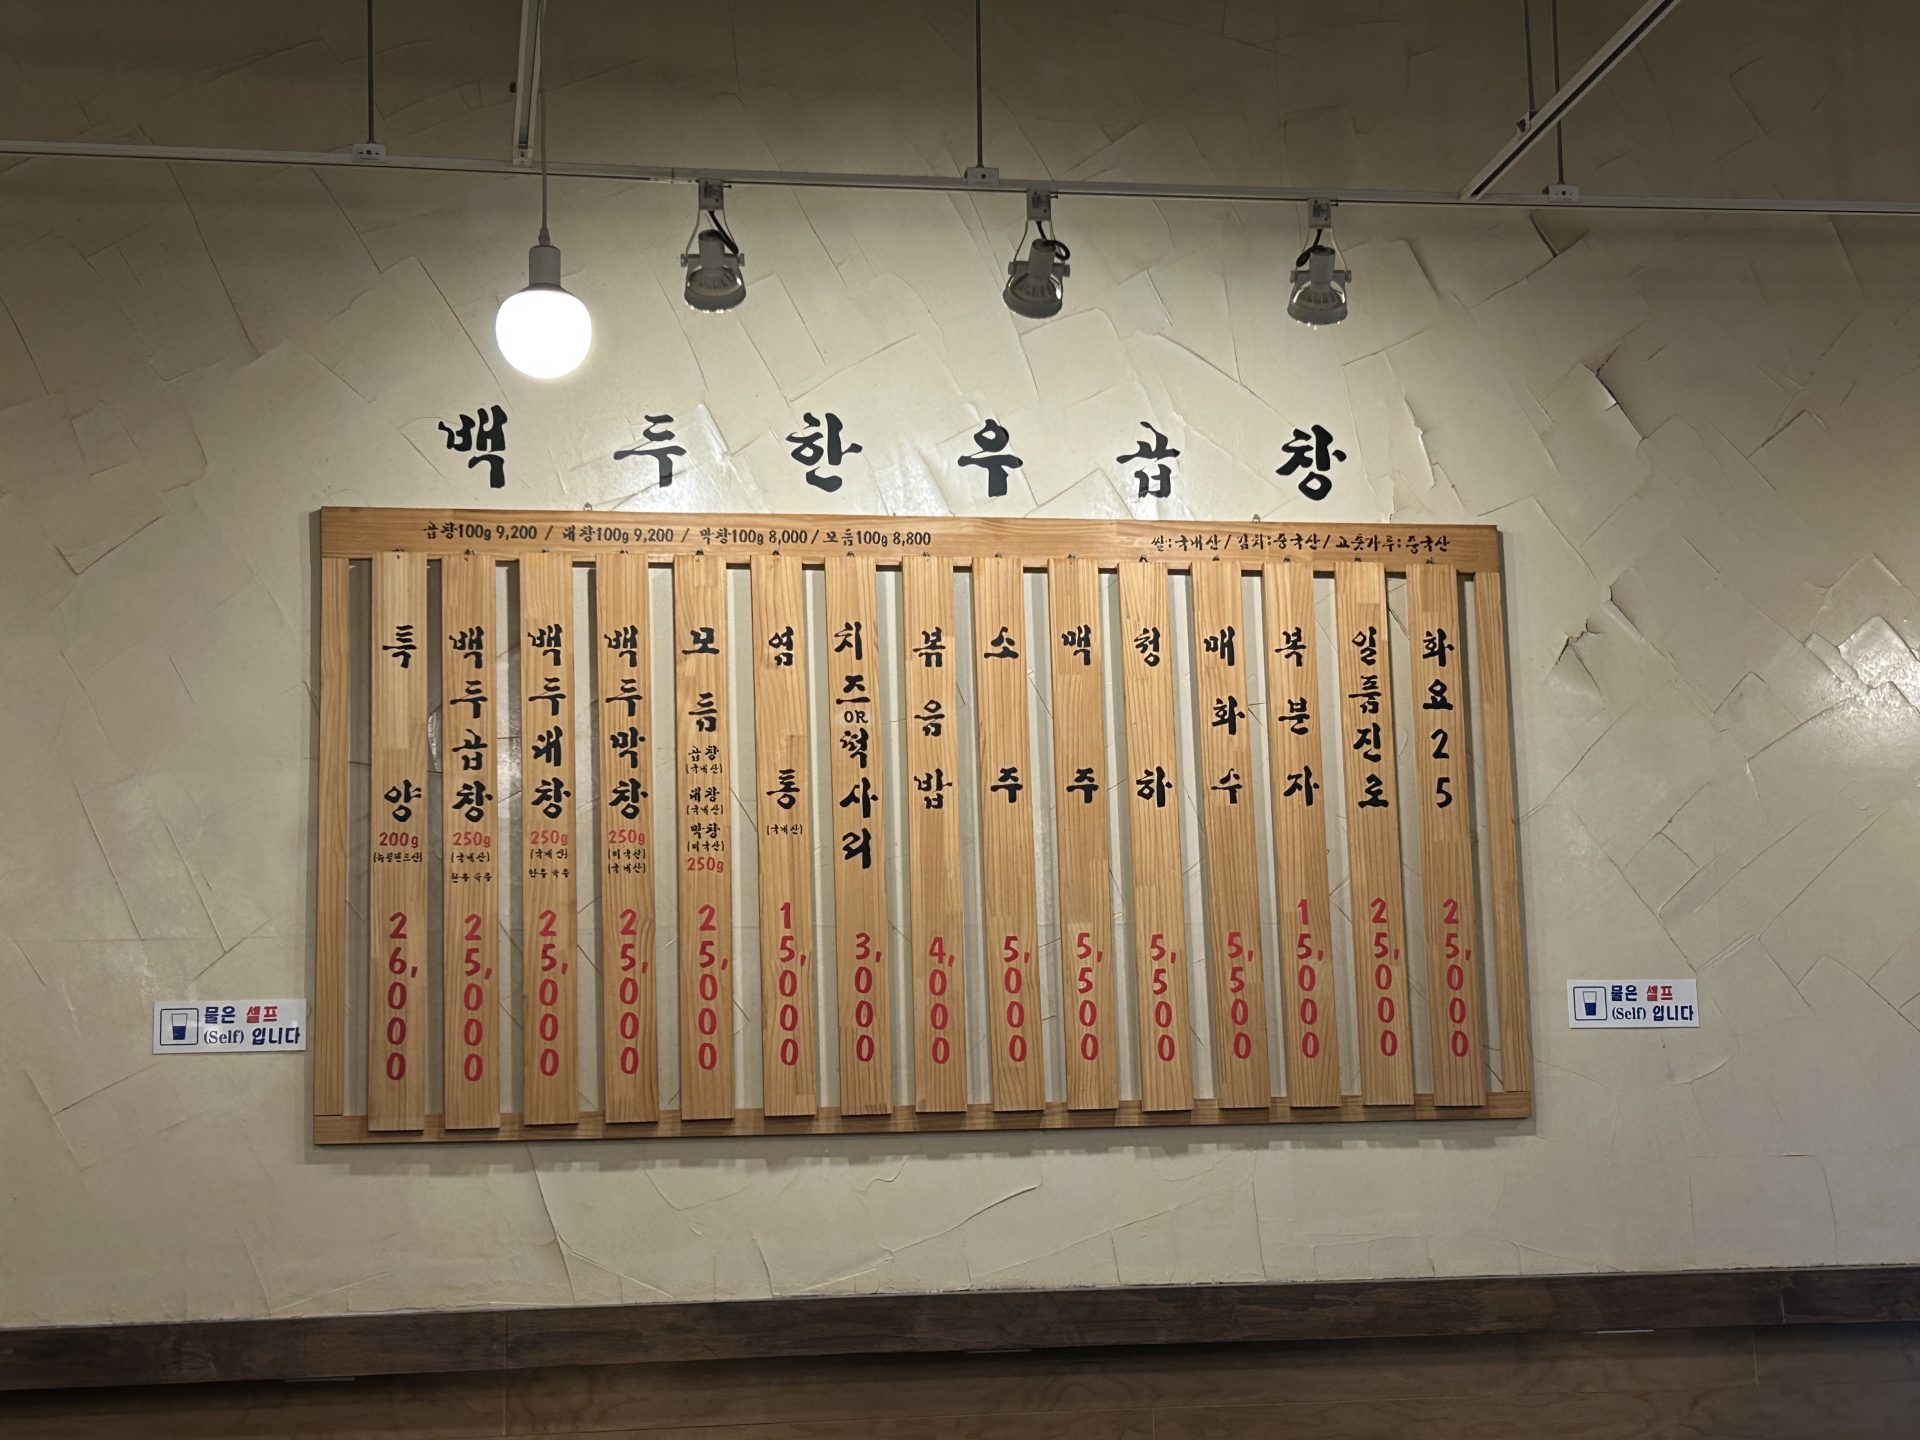 백두한우곱창
곱창100g 9,200 / 대창100g 9,200 / 막창100g 8,000 / 모듬100g 8,800
쌀:국내산 / 김치:중국산 / 고춧가루:중국산
특양
200g
(뉴질랜드산)
26,000
백두곱창
250g
(국내산)
한우 육우
25,000
백두대창
250g
(국내산)
한우 육우
25,000
백두막창
250g
(미국산)
(국내산)
25,000
모듬
곱창
(국내산)
대창
(국내산)
막창
(미국산)
250g
25,000
염통
(국내산)
15,000
치즈
OR
떡사리
3,000
볶음밥
4,000
소주
5,000
맥주
5,500
청하
5,500
매화수
5,500
복분자
15,000
일품진로
25,000
화요25
25,000
물은 셀프
(Self) 입니다
물은 셀프
(Self) 입니다